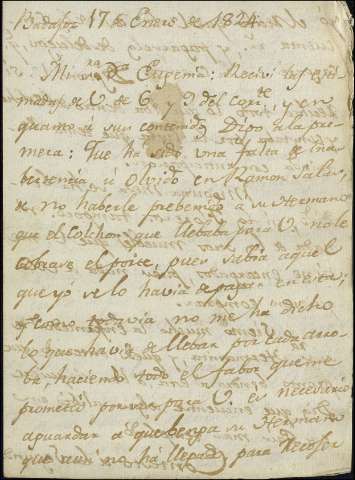 Badajoz 17 de Enero de 1824
Mi S.ra D.a Eugenia: Recivi las esti
madas de V. de 6 y 9 del corr.te y en
quanto á sus contenidos Digo a la pri
mera: Que ha sido una falta de ina
bertencia ú olvido en Ramon Salas
de no haberle prebenido a su Hermano
que el colchon que llebaba para V. no le
cobrase el porte, pues sabia aquel
que yó se lo havia de pagar
y como todavia no me ha dicho
lo que havia de llebar por cada arro
ba, haciendo todo el fabor que me
prometió por ser para V. es necesario
aguardar a que benga su Hermano
que aun no ha llegado para